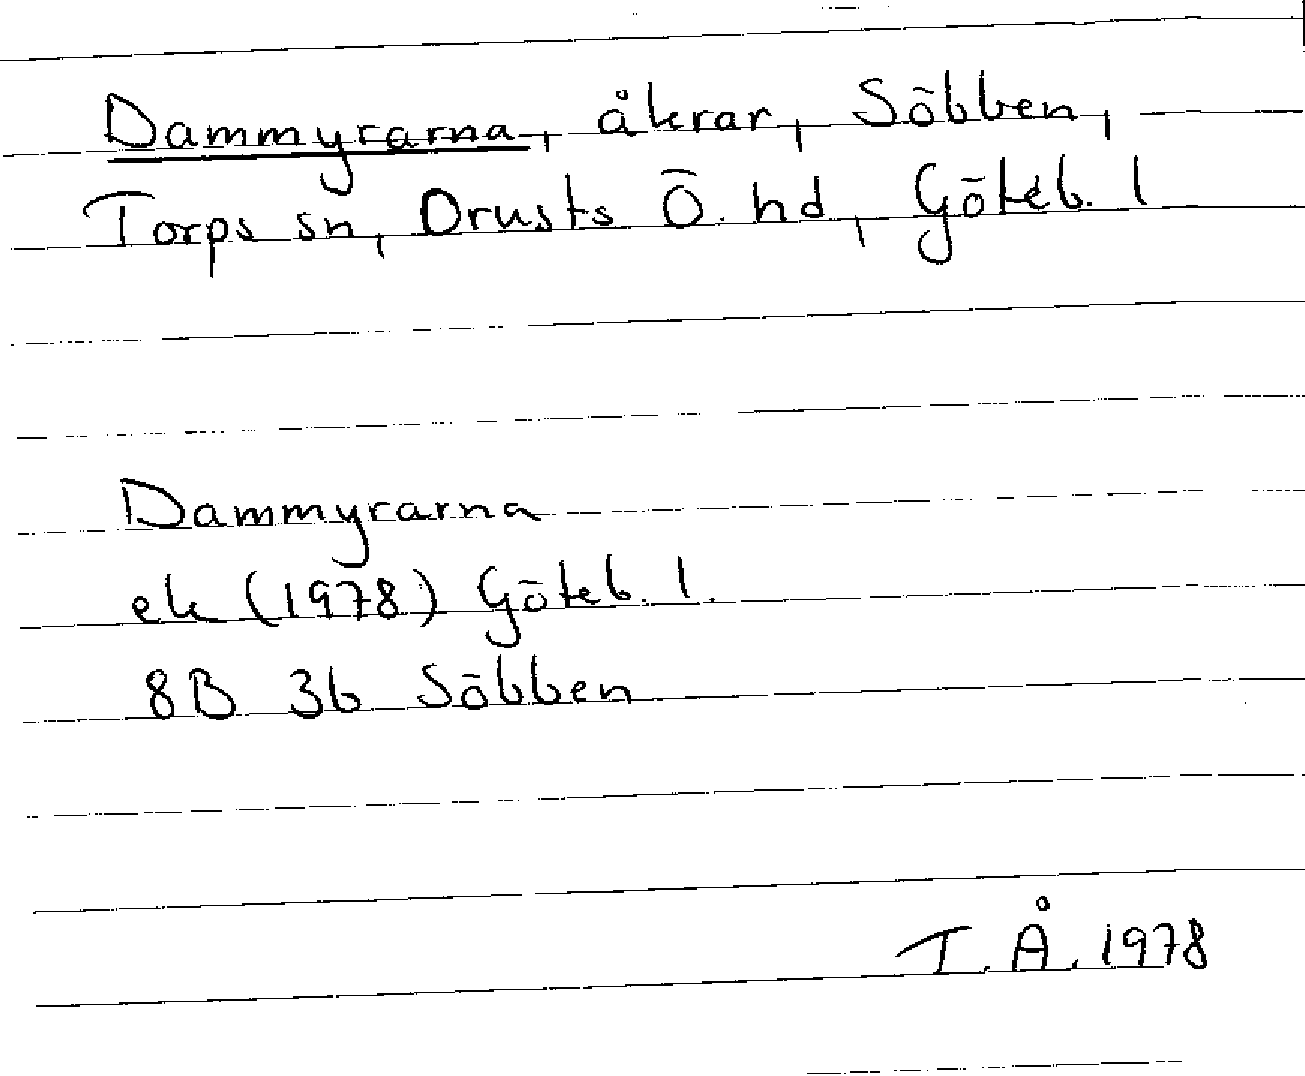 Dammyrarna, åkrar, Söbben,
Torps sn, Orusts Ö. hd, Göteb. l
Dammyrarna
ek (1978) Göteb. l.
8B 3b Söbben
T. Å. 1978